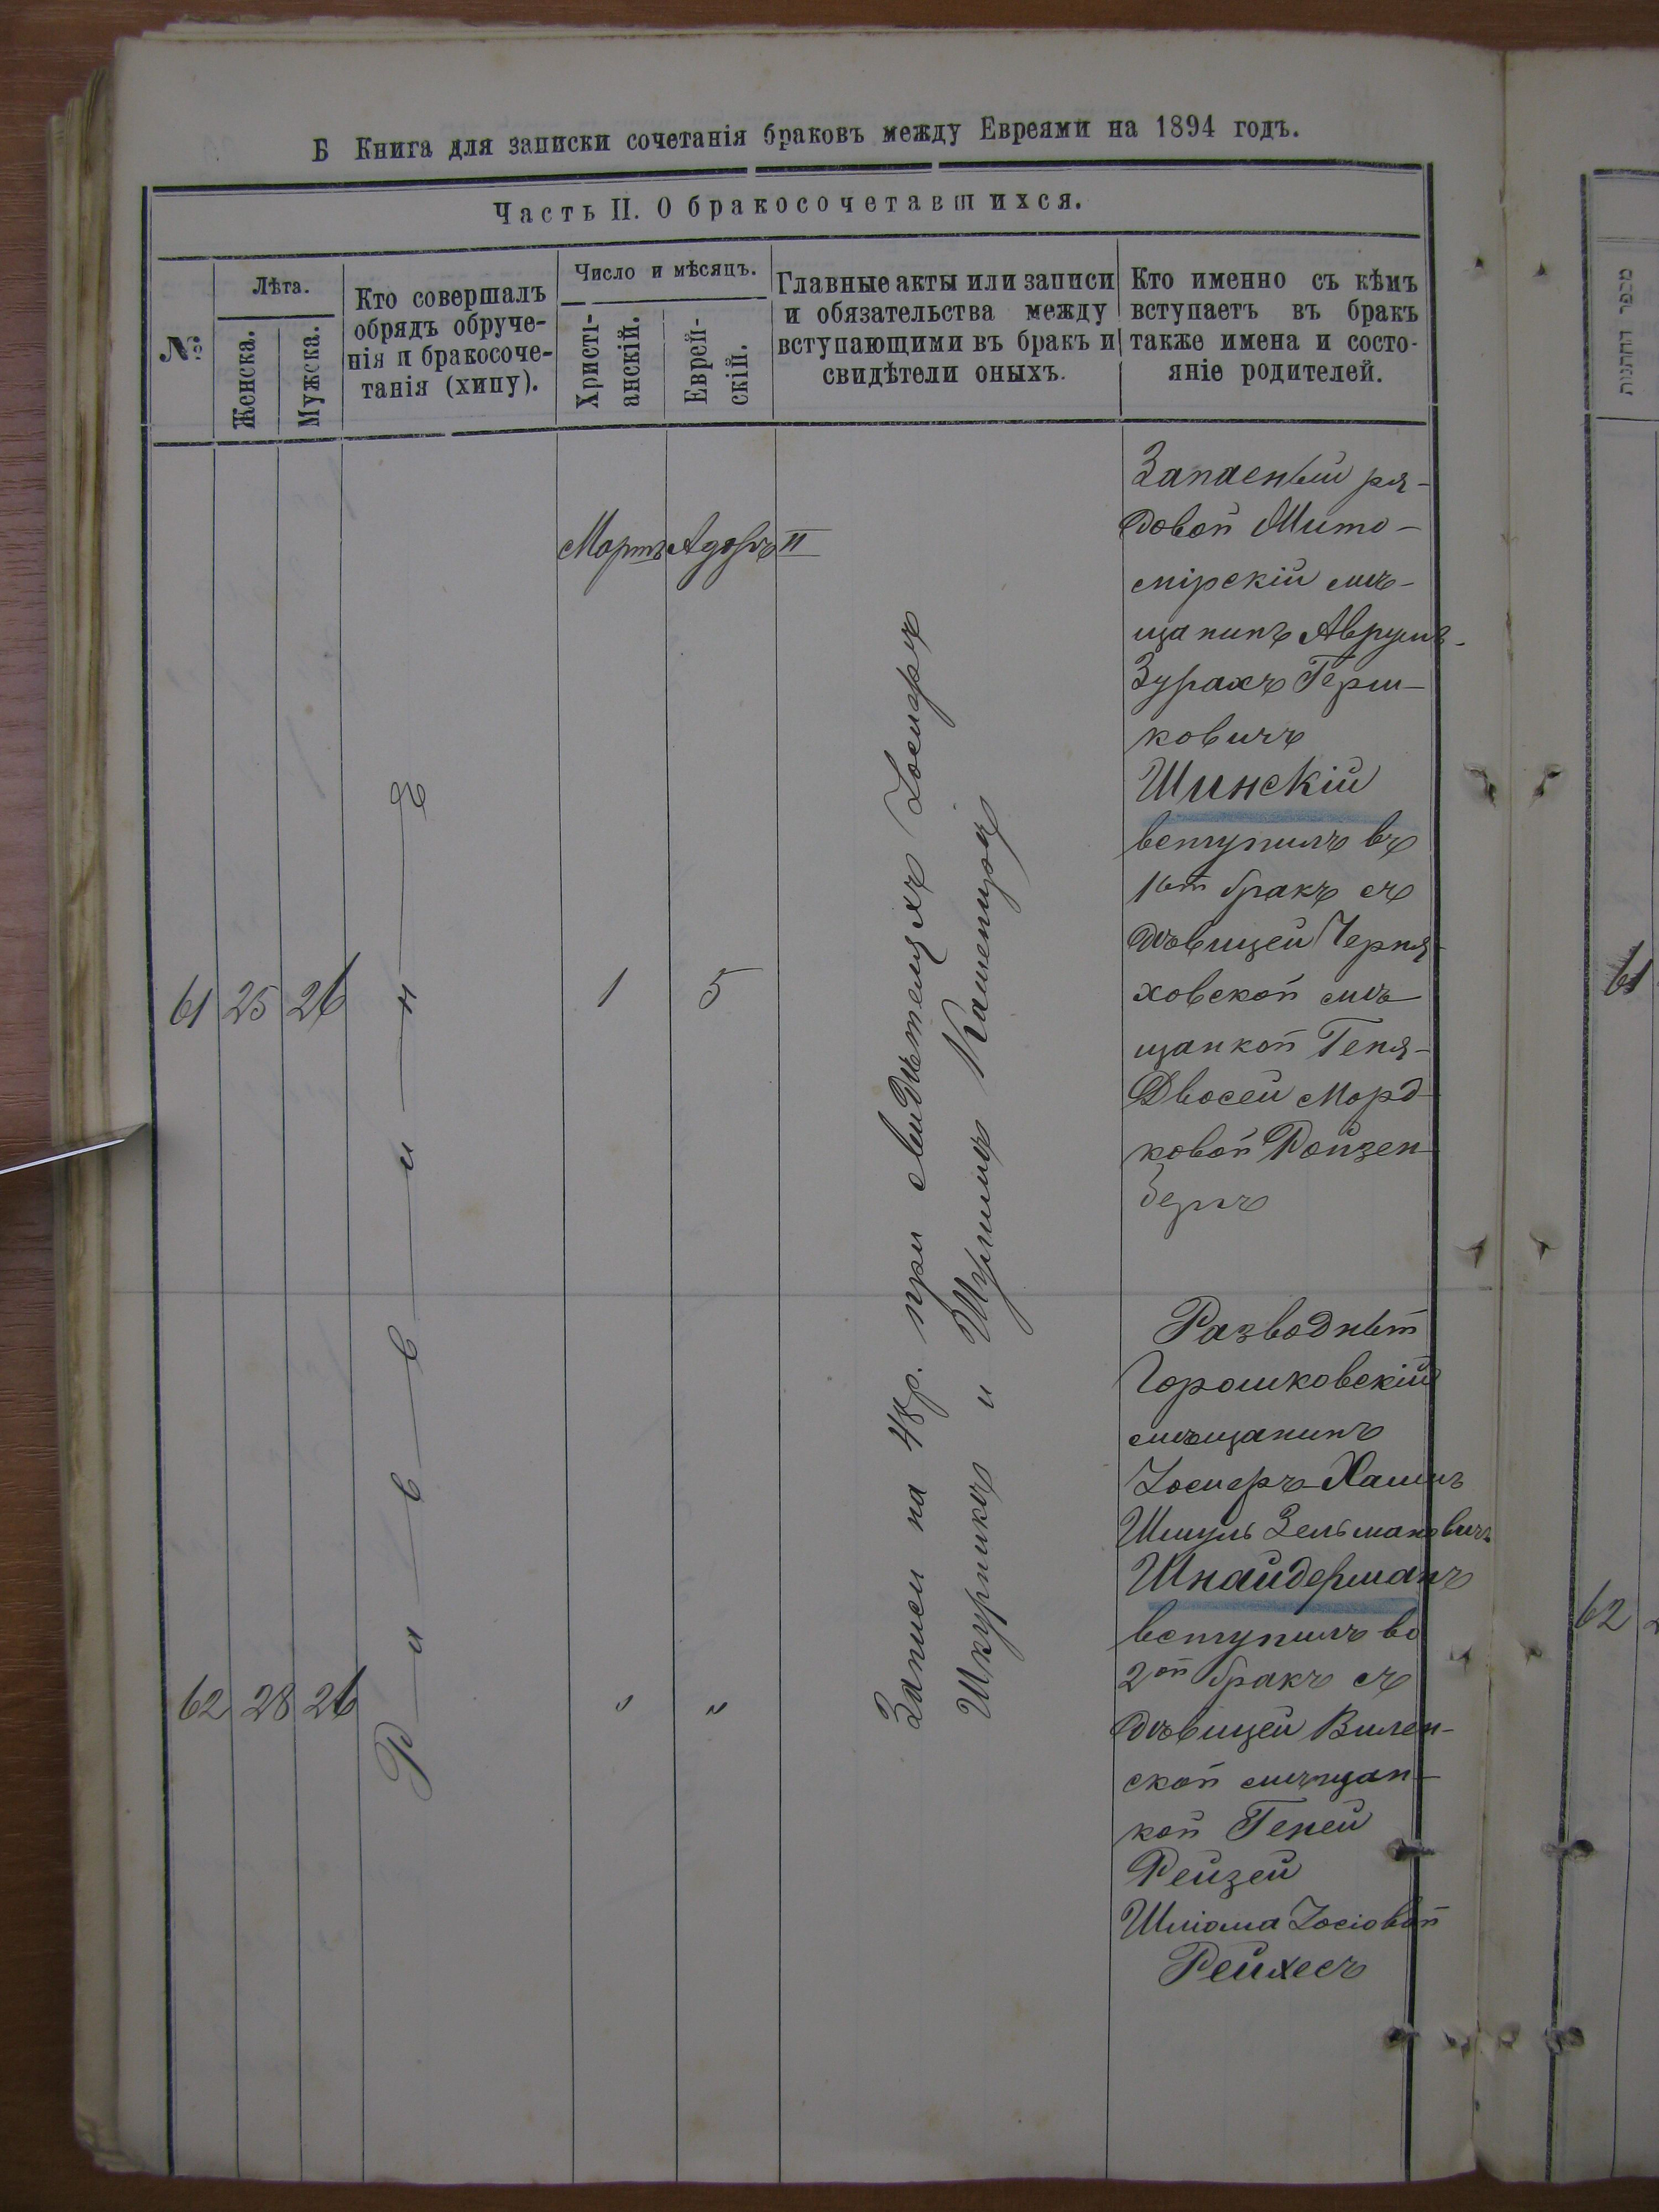 Б Книга для записки сочетанія браковъ между Евреями на 1894 годъ.
Часть II. О бракосочетавшихся.
№
Лѣта.
Женска.
Мужска.
Кто совершалъ
обрядъ обруче-
нія и бракосоче-
танія (хипу).
Число и мѣсяцъ.
Христі-
анскій.
Еврей-
скій.
Главные акты или записи
и обязательства между
вступающими въ бракъ и
свидѣтели оныхъ.
Кто именно съ кѣмъ
вступаетъ въ бракъ
также имена и состо-
яніе родителей.
Мартъ Адаръ II
61 25 26
1 5
Раввинъ
Записи на 48 р. при свидѣтеляхъ Іосифъ
Шкурникъ и Шулимъ Каменицъ
Запасный ря-
довой Жито-
мірскій мѣ-
щанинъ Аврумъ-
Зурахъ Герш-
ковичъ
Шинскій
вступилъ въ
1ый бракъ съ
дѣвицей Черня-
ховской мѣ-
щанкой Геня-
Двосей Морд-
ковой Ройзен-
бергъ
62 28 26
" "
Разводный
Горошковскій
мѣщанинъ
Іосифъ-Хаимъ
Шмуль Зельмановичъ
Шнайдерманъ
вступилъ во
2ой бракъ съ
дѣвицей Вилен-
ской мѣщан-
кой Геней
Рейзей
Шліома Іосіовой
Рейхесъ
מספר החתנות
61
62